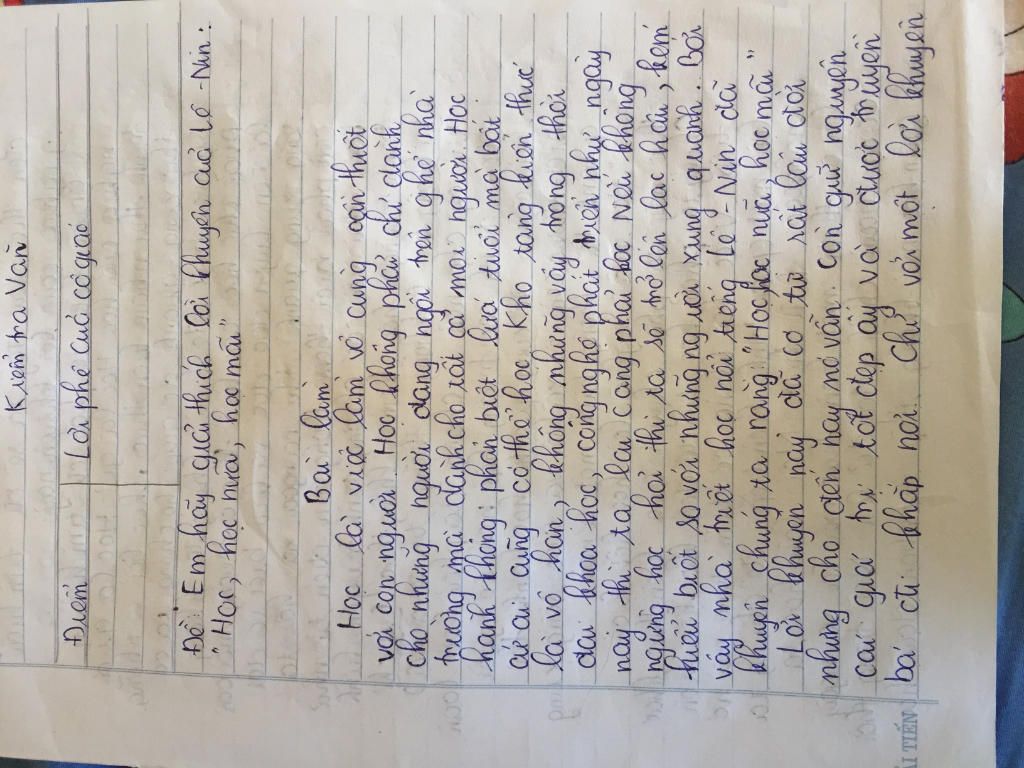 Kiểm tra Văn
Điểm
Lời phê của cô giáo
Đề: Em hãy giải thích lời khuyên của Lê - Nin:
"Học, học nữa, học mãi"
Bài làm
Học là việc làm vô cùng cần thiết
với con người. Học không phải chỉ dành
cho nhưng người đang ngồi trên ghế nhà
trường mà dành cho tất cả mọi người. Học
hành không phân biệt lứa tuổi mà bất
cứ ai cũng có thể học. Kho tàng kiến thức
là vô hạn, không những vậy trong thời
đại khoa học, công nghệ phát triển như ngày
nay thì ta lại càng phải học. Nếu không
ngừng học hỏi thì ta sẽ trở lên lạc hâu, kém
hiểu biết so với nhưng người xung quanh. Bởi
vậy nhà triết học nổi tiếng Lê - Nin đã
khuyên chúng ta rằng "Học học nữa, học mãi"
Lời khuyên này đã có từ rất lâu đời
nhưng cho đến nay nó vẫn còn giữ nguyên
cái giá trị tốt đẹp ấy và được truyền
bá đi khắp nơi. Chỉ với một lời khuyên
ẢI TIẾN